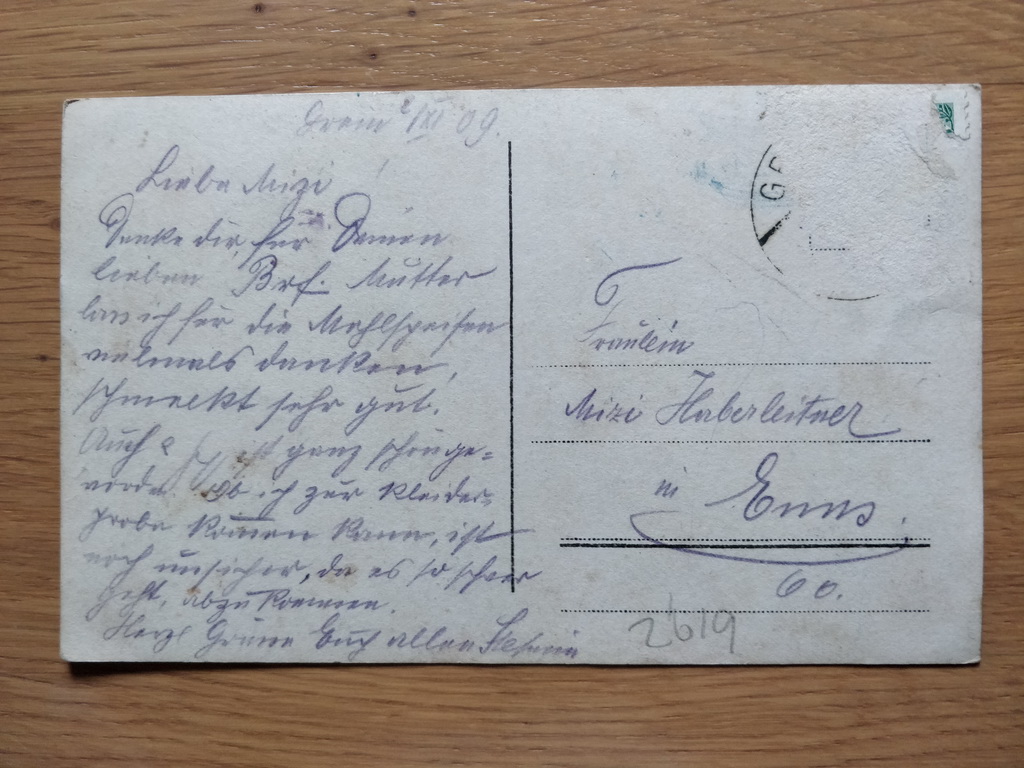 Grein 2/XI 09.
Liebe Mizi
Danke dir für Deinen
lieben Brf. Mutter
lass ich für die Mehlspeisen
vielmals danken,
schmeckt sehr gut.
Auch ist ganz schön ge=
worden. Ob ich zur Kleider=
probe kommen kann, ist
noch unsicher, da es so schwer
geht, abzukommen.
Herzl Grüsse Euch allen
GR
Fräulein
Mizi Haberleitner
in Enns.
60.
2619